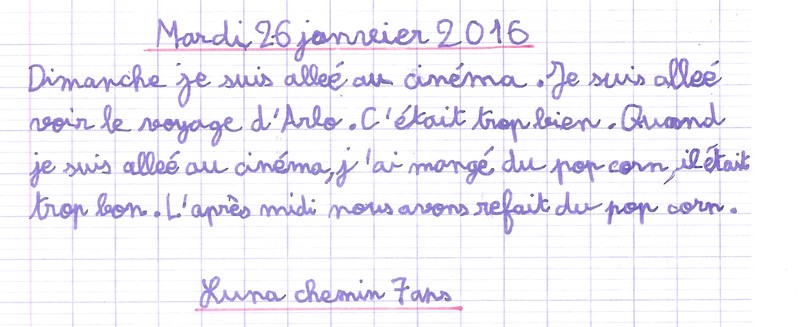 Mardi 26 janvier 2016
Dimanche je suis alleé au cinéma. Je suis alleé
voir le voyage d'Arlo. C'était trop bien. Quand
je suis alleé au cinéma, j'ai mangé du pop corn, il était
trop bon. L'après midi nous avons refait du pop corn.
Luna chemin 7 ans